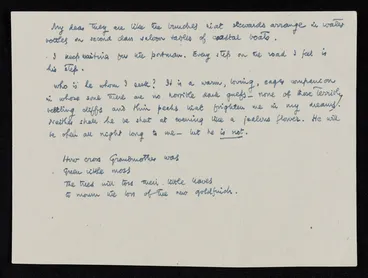 My dear they are like the bunches that stewards arrange in water
bottles on second class saloon tables of coastal boats.
- I keep waiting for the postman. Every step on the road I feel is
his step.
Who is he whom I seek? It is a warm, loving, eager companion
in whose zone there are no horrible dark gulfs - none of these terribly
cliffs and thin peaks that frighten me in my dreams.
Neither shall he be shut at evening like a jealous flower. He will
be open all night long to me - but he is not.
How cross Grandmother was
Green little moss
The trees will toss their little leaves
to mourn the loss of the new goldfinch.